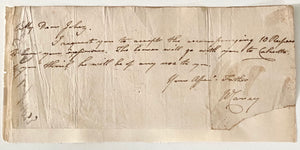 My Dear
I request you to accept the accompanying 10 Rupees
to your expences. The bearer will go with you to Calcutta
if you think he will be of any use to you
Your Affect. Father